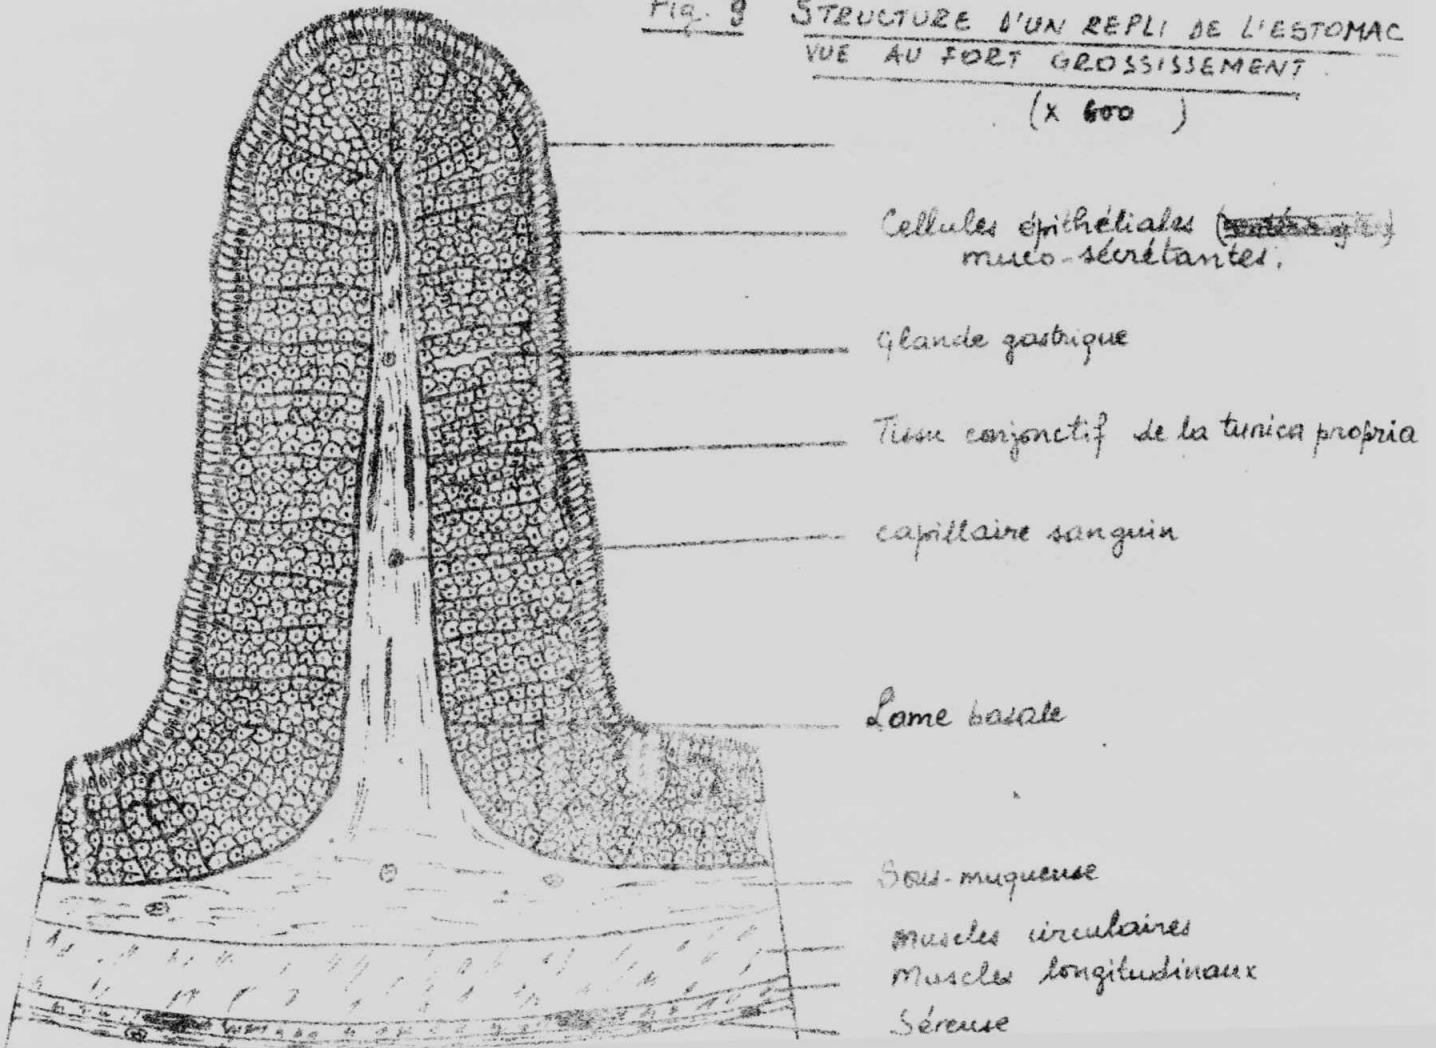 Fig. 9 STRUCTURE D'UN REPLI DE L'ESTOMAC
VUE AU FORT GROSSISSEMENT
(x 600 )
Cellules épithéliales
muco-sécrétantes.
Glande gastrique
Tissu conjonctif de la tunica propria
capillaire sanguin
Lame basale
Sous-muqueuse
Muscles circulaires
Muscles longitudinaux
Séreuse